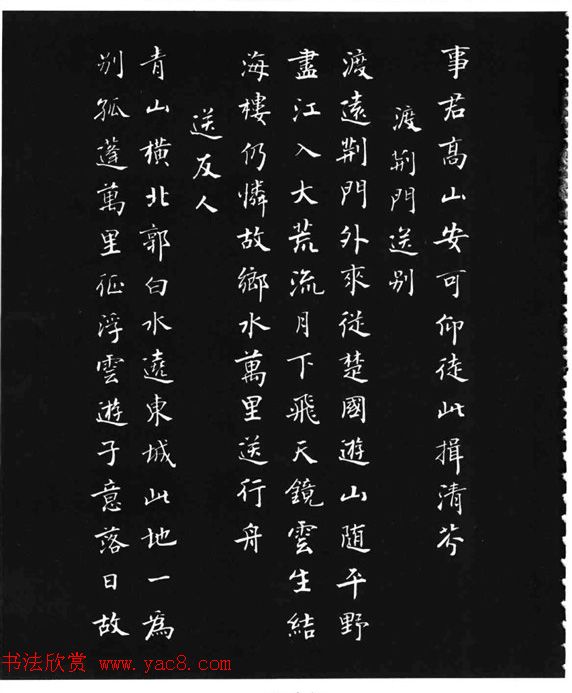 事君高山安可仰徒此揖清芬
渡荆門送别
渡遠荆門外來從楚國遊山随平野
盡江入大荒流月下飛天鏡雲生結
海樓仍憐故鄉水萬里送行舟
送友人
青山横北郭白水遶東城此地一為
别孤蓬萬里征浮雲遊子意落日故
书法欣赏 www.yac8.com